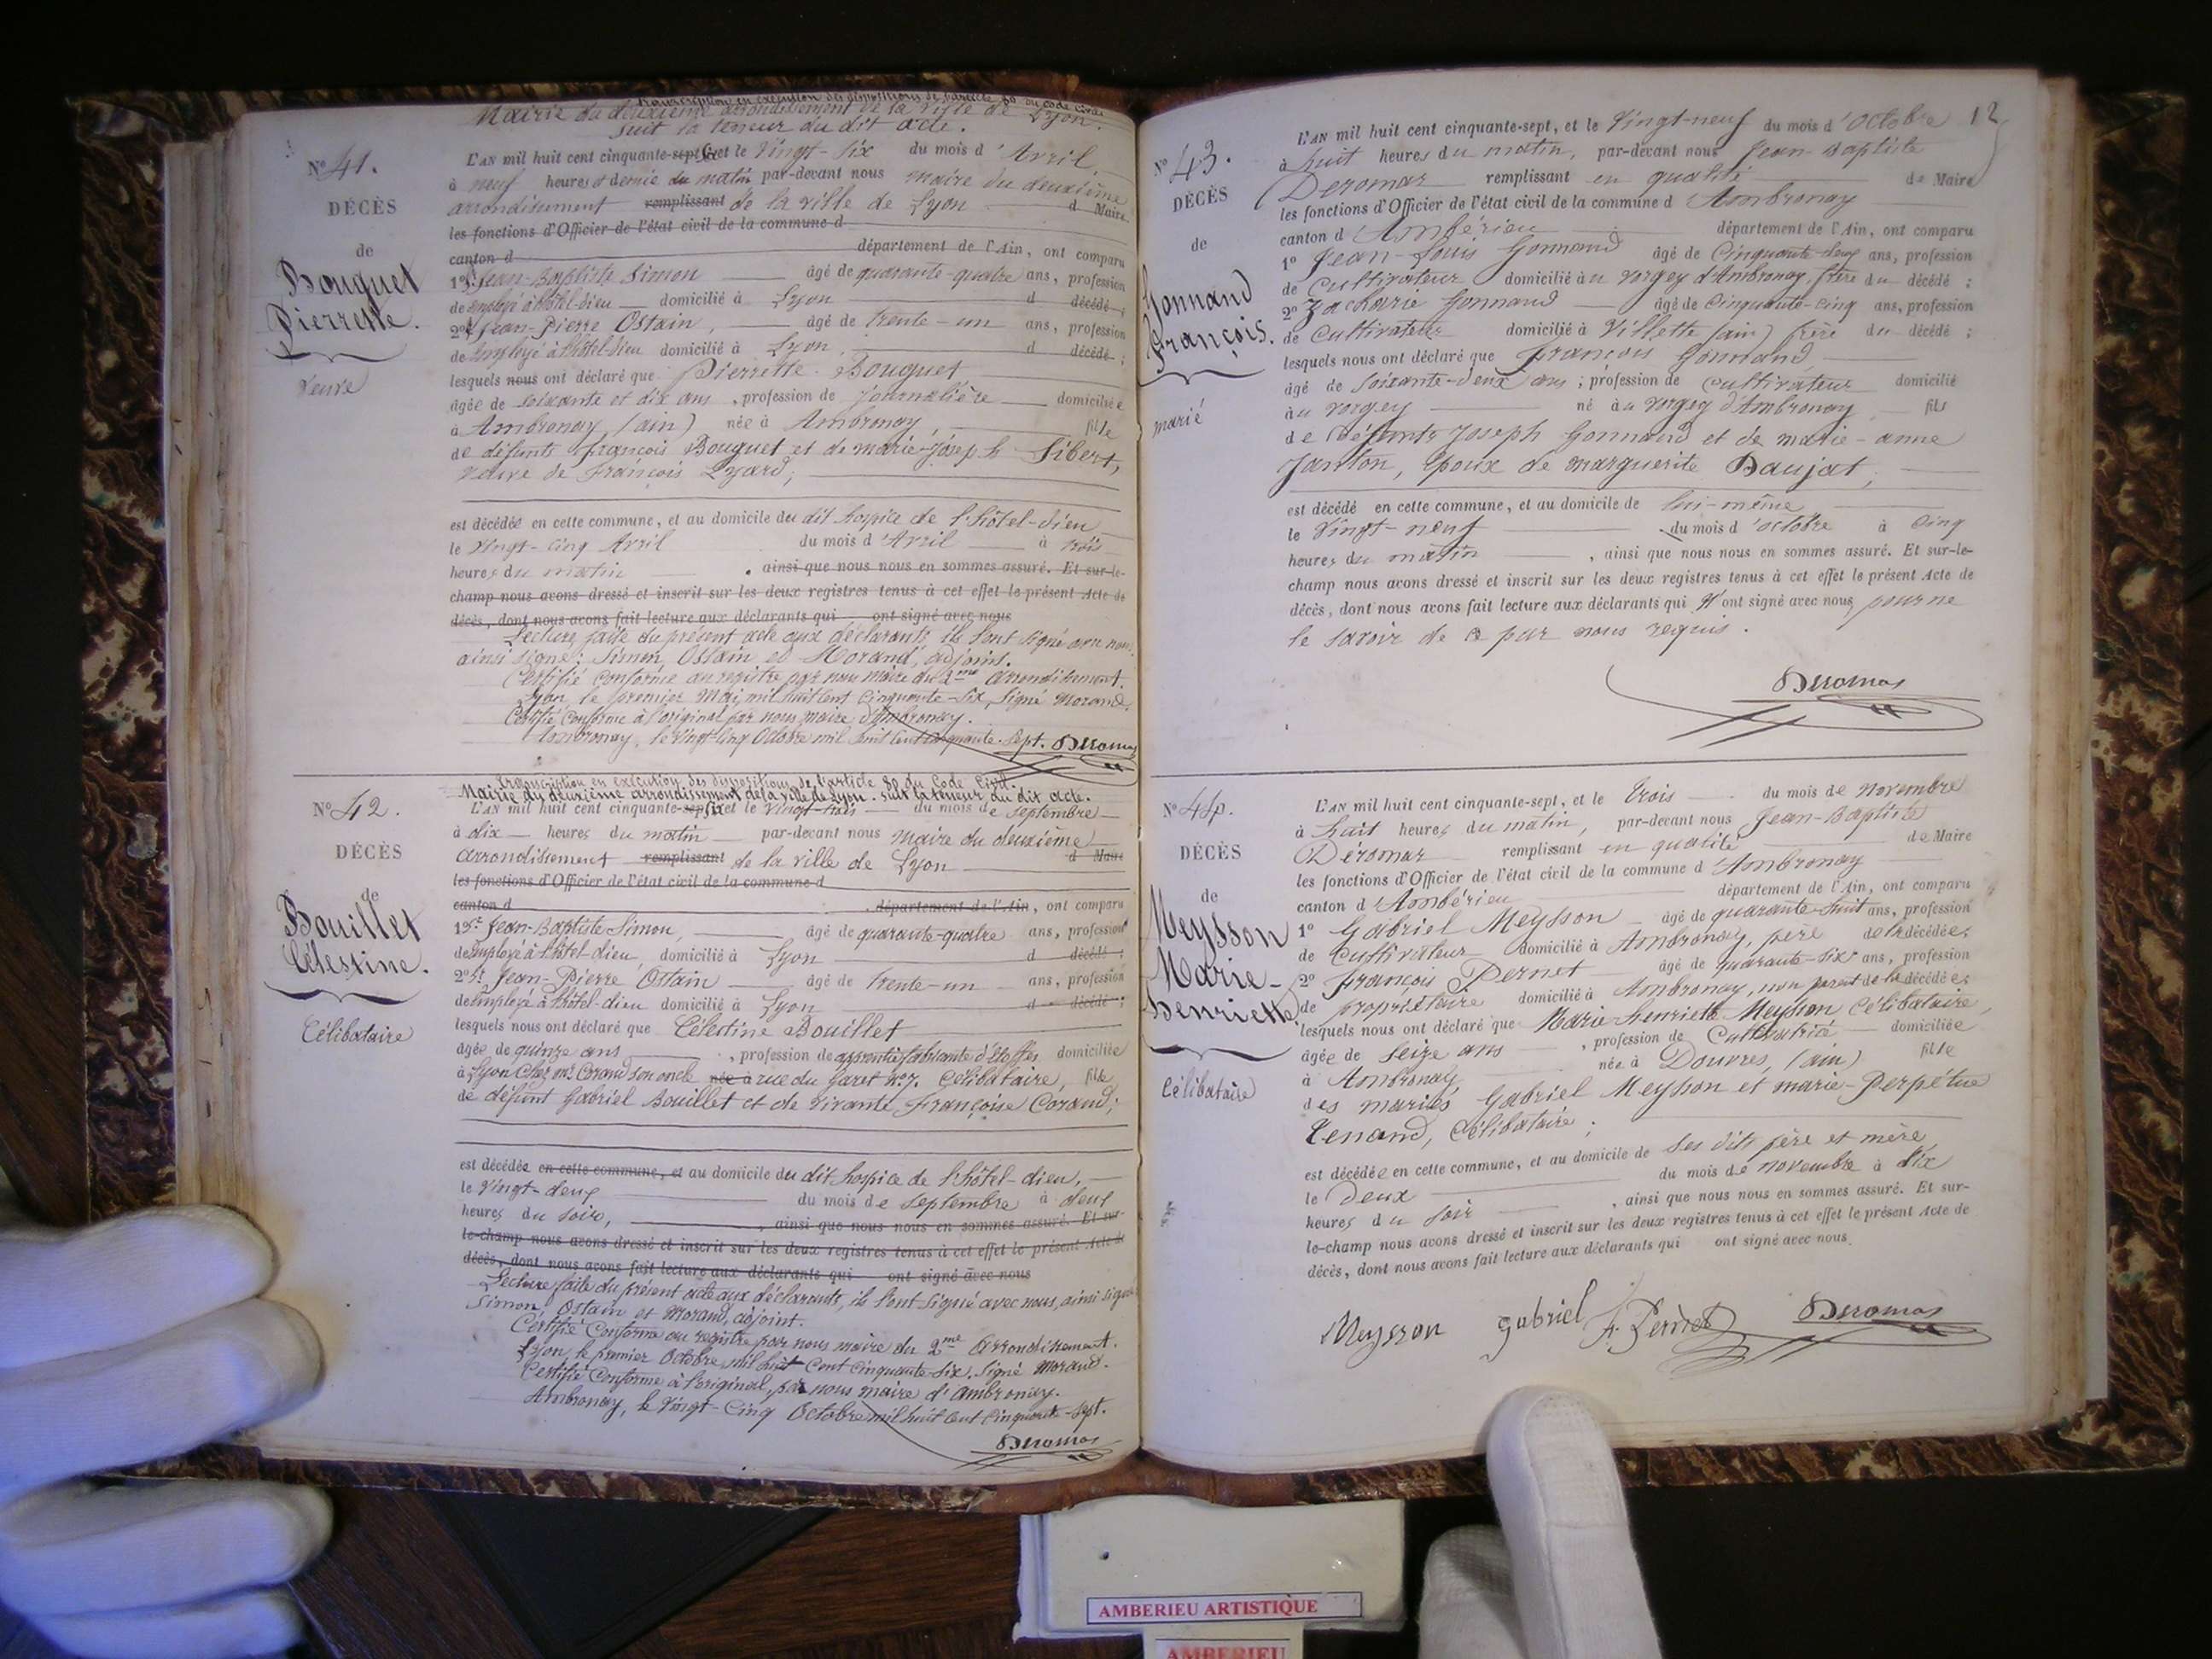 Transcription en exécution des dispositions de l'article 80 du code civil
Mairie du deuxième arrondissement de la ville de Lyon.
suit la teneur du dit acte.
N° 41.
DÉCÈS
de
Bouguet
Pierrette.
Veuve
L'AN mil huit cent cinquante-sept six et le Vingt-six du mois d'Avril,
à neuf heures et demie du matin par-devant nous maire du deuxième
arrondissement remplissant de la ville de Lyon d Maire
les fonctions d'Officier de l'état civil de la commune d
canton d département de l'Ain, ont comparu
1° Jean-Baptiste Simon âgé de quarante-quatre ans, profession
de employé à l'hôtel-Dieu domicilié à Lyon d décédé ;
2° Jean-Pierre Ostain, âgé de trente-un ans, profession
de employé à l'hôtel-Dieu domicilié à Lyon, d décédé ;
lesquels nous ont déclaré que Pierrette Bouguet
âgée de soixante et dix ans, profession de Journalière domiciliée
à Ambronay (ain) née à Ambronay, fille
de défunts françois Bouguet et de marie-Joseph Sibert,
veuve de François Lyard;
est décédée en cette commune, et au domicile du dit hospice de l'hôtel-Dieu
le Vingt-cinq Avril du mois d'Avril à trois
heures du matin. ainsi que nous nous en sommes assuré. Et sur-le-
champ nous avons dressé et inscrit sur les deux registres tenus à cet effet le présent Acte de
décès, dont nous avons fait lecture aux déclarants qui ont signé avec nous
Lecture faite du présent acte aux déclarants ils l'ont signé avec nous
ainsi signé : Simon, Ostain et Morand, adjoint.
Certifié conforme au registre par nous maire du 2me arrondissement.
Lyon, le premier Mai, mil huit cent cinquante-six, signé Morand.
Certifié conforme à l'original par nous, maire d'Ambronay.
Ambronay, le Vingt-cinq Octobre mil huit cent cinquante-sept. Deromas
N° 42.
DÉCÈS
de
Bouillet
Célestine.
Célibataire
Transcription en exécution des dispositions de l'article 80 du Code Civil.
Mairie du deuxième arrondissement de la ville de Lyon. suit la teneur du dit acte.
L'AN mil huit cent cinquante-sept six et le vingt-trois du mois de septembre
à dix heures du matin par-devant nous maire du deuxième
arrondissement remplissant de la ville de Lyon d Maire
les fonctions d'Officier de l'état civil de la commune d
canton d département de l'Ain, ont comparu
1° Sr Jean-Baptiste Simon, âgé de quarante-quatre ans, profession
de employé à l'hôtel dieu, domicilié à Lyon d décédé ;
2° Sr Jean-Pierre Ostain âgé de trente-un ans, profession
de employé à l'hôtel-dieu domicilié à Lyon d décédé ;
lesquels nous ont déclaré que Célestine Bouillet
âgée de quinze ans, profession de apprentie fabricante d'étoffes domiciliée
à Lyon chez Mr Corand son oncle née à rue du Garet n° 7. Célibataire, fille
de défunt Gabriel Bouillet et de vivante Françoise Corand;
est décédée en cette commune, et au domicile du dit hospice de l'hôtel-dieu,
le Vingt-deux du mois de septembre à deux
heures du soir, ainsi que nous nous en sommes assuré. Et sur-
le-champ nous avons dressé et inscrit sur les deux registres tenus à cet effet le présent Acte de
décès, dont nous avons fait lecture aux déclarants qui ont signé avec nous
Lecture faite du présent acte aux déclarants, ils l'ont signé avec nous, ainsi signé
Simon, Ostain et Morand, adjoint.
Certifié conforme au registre par nous maire du 2me arrondissement.
Lyon, le premier Octobre, mil huit cent cinquante-six. Signé Morand.
Certifié conforme à l'original, par nous maire d'Ambronay.
Ambronay, le Vingt-cinq Octobre mil huit cent cinquante-sept.
Deromas
12
N° 43.
DÉCÈS
de
Gonnand
François.
marié
L'AN mil huit cent cinquante-sept, et le Vingt-neuf du mois d'Octobre
à huit heures du matin, par-devant nous Jean-Baptiste
Deromas remplissant en qualité de Maire
les fonctions d'Officier de l'état civil de la commune d'Ambronay
canton d'Ambérieu département de l'Ain, ont comparu
1° Jean-Louis Gonnand âgé de Cinquante-deux ans, profession
de Cultivateur domicilié au vorgey d'Ambronay, frère du décédé ;
2° Zacharie Gonnand âgé de Cinquante-cinq ans, profession
de Cultivateur domicilié à Villette (ain) frère du décédé ;
lesquels nous ont déclaré que François Gonnand,
âgé de soixante-deux ans ; profession de cultivateur domicilié
au vorgey né au vorgey d'Ambronay fils
de Défunts Joseph Gonnand et de marie-anne
Janton, époux de marguerite Daujat;
est décédé en cette commune, et au domicile de lui-même
le Vingt-neuf du mois d'octobre à Cinq
heures du matin, ainsi que nous nous en sommes assuré. Et sur-le-
champ nous avons dressé et inscrit sur les deux registres tenus à cet effet le présent Acte de
décès, dont nous avons fait lecture aux déclarants qui n'ont signé avec nous, pour ne
le savoir de ce par nous requis.
Deromas
N° 44.
DÉCÈS
de
Meysson
Marie-
Henriette.
Célibataire
L'AN mil huit cent cinquante-sept, et le trois du mois de novembre
à huit heures du matin, par-devant nous Jean-Baptiste
Déromas remplissant en qualité de Maire
les fonctions d'Officier de l'état civil de la commune d'Ambronay
canton d'Ambérieu département de l'Ain, ont comparu
1° Gabriel Meysson âgé de quarante-huit ans, profession
de Cultivateur domicilié à Ambronay, père de la décédée ;
2° François Pernet âgé de quarante-six ans, profession
de propriétaire domicilié à Ambronay, non parent de la décédée ;
lesquels nous ont déclaré que Marie-henriette Meysson Célibataire,
âgée de seize ans, profession de Cultivatrice domiciliée
à Ambronay, née à Douvres, (ain) fille
des mariés Gabriel Meysson et marie-Perpétue
Tenand, Célibataire ;
est décédée en cette commune, et au domicile de ses dits père et mère
le Deux du mois de novembre à dix
heures du soir, ainsi que nous nous en sommes assuré. Et sur-
le-champ nous avons dressé et inscrit sur les deux registres tenus à cet effet le présent Acte de
décès, dont nous avons fait lecture aux déclarants qui ont signé avec nous.
Meysson gabriel F. Pernet Deromas
AMBERIEU ARTISTIQUE
AMBERIEU